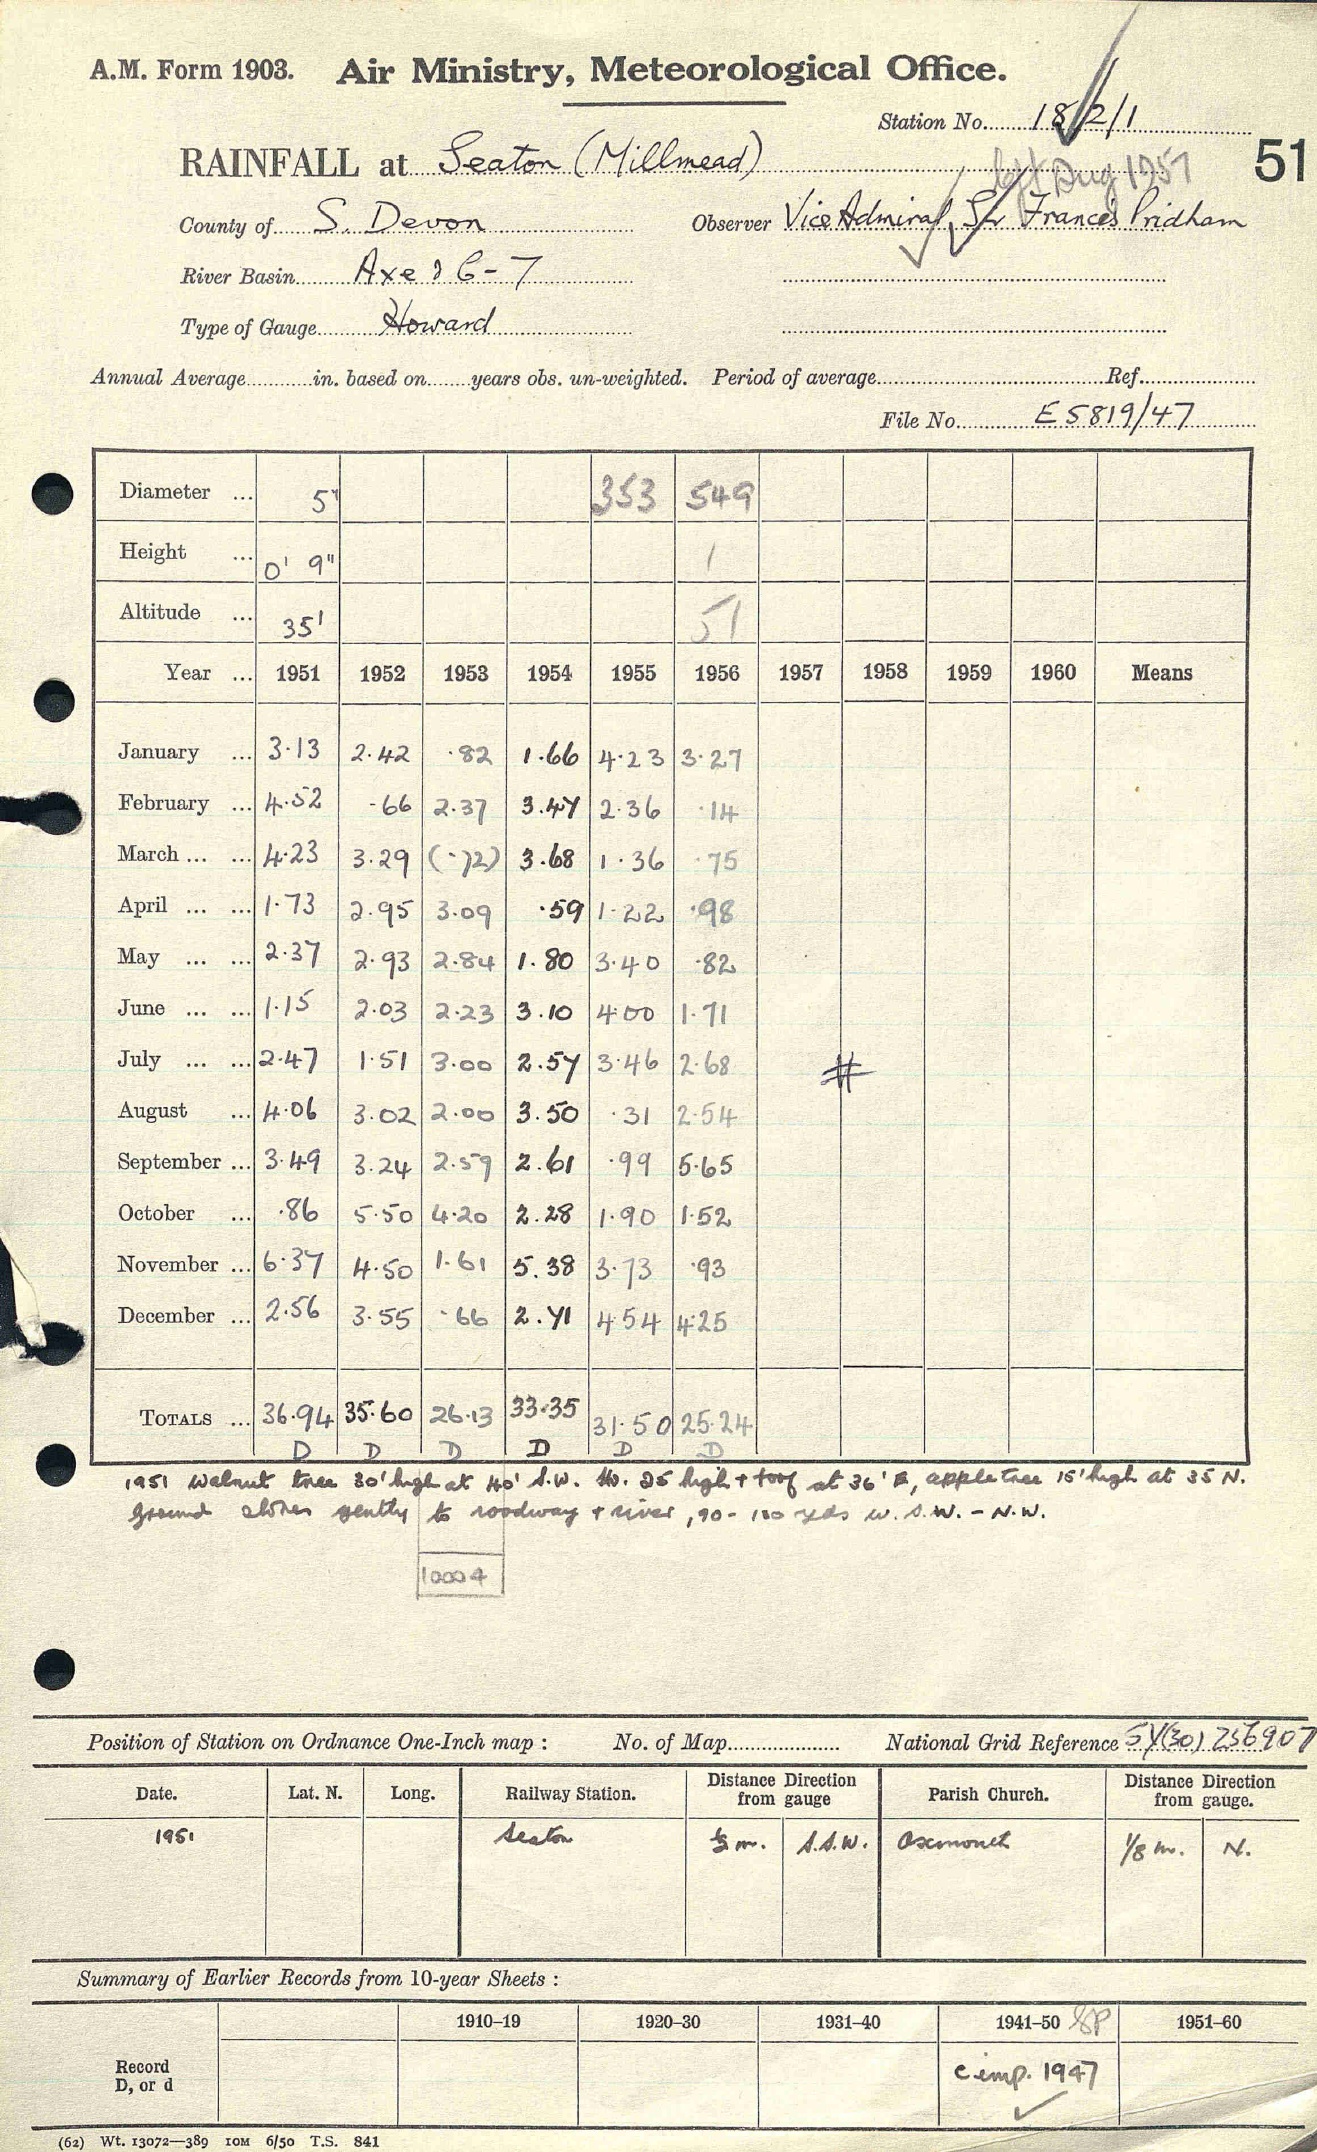 A.M. Form 1903. Air Ministry, Meteorological Office.
Station No. 182/1
RAINFALL at Seaton (Millmead)
left Aug 1957
51
County of S. Devon Observer Vice Admiral Sir Francis Pridham
River Basin Axe & 6-7
Type of Gauge Howard
Annual Average in. based on years obs. un-weighted. Period of average Ref.
File No. E5819/47
Diameter ... 5" 353 549
Height ... 0' 9" 1
Altitude ... 35' 51
Year ... 1951 1952 1953 1954 1955 1956 1957 1958 1959 1960 Means
January ... 3.13 2.42 .82 1.66 4.23 3.27
February ... 4.52 .66 2.37 3.47 2.36 .14
March ... ... 4.23 3.29 (.72) 3.68 1.36 .75
April ... ... 1.73 2.95 3.09 .59 1.22 .98
May ... ... 2.37 2.93 2.84 1.80 3.40 .82
June ... ... 1.15 2.03 2.23 3.10 4.00 1.71
July ... ... 2.47 1.51 3.00 2.57 3.46 2.68
#
August ... 4.06 3.02 2.00 3.50 .31 2.54
September ... 3.49 3.24 2.59 2.61 .99 5.65
October ... .86 5.50 4.20 2.28 1.90 1.52
November ... 6.37 4.50 1.61 5.38 3.73 .93
December ... 2.56 3.55 .66 2.71 4.54 4.25
TOTALS ... 36.94 35.60 26.13 33.35 31.50 25.24
D D D D D D
1951 Walnut tree 30' high at 40' S.W. Ho. 25 high + roof at 36' E, apple tree 15' high at 35 N.
Ground slopes gently to roadway + river, 90-100 yds W.S.W. - N.W.
10004
Position of Station on Ordnance One-Inch map : No. of Map National Grid Reference SY(30) 256907
Date. Lat. N. Long. Railway Station. Distance Direction from gauge Parish Church. Distance Direction from gauge.
1951 Seaton m. S.S.W. Axmouth 1/8 m. N.
Summary of Earlier Records from 10-year Sheets :
1910–19 1920–30 1931–40 1941–50 1951–60
Record D, or d
c imp. 1947
(62) Wt. 13072—389 10M 6/50 T.S. 841